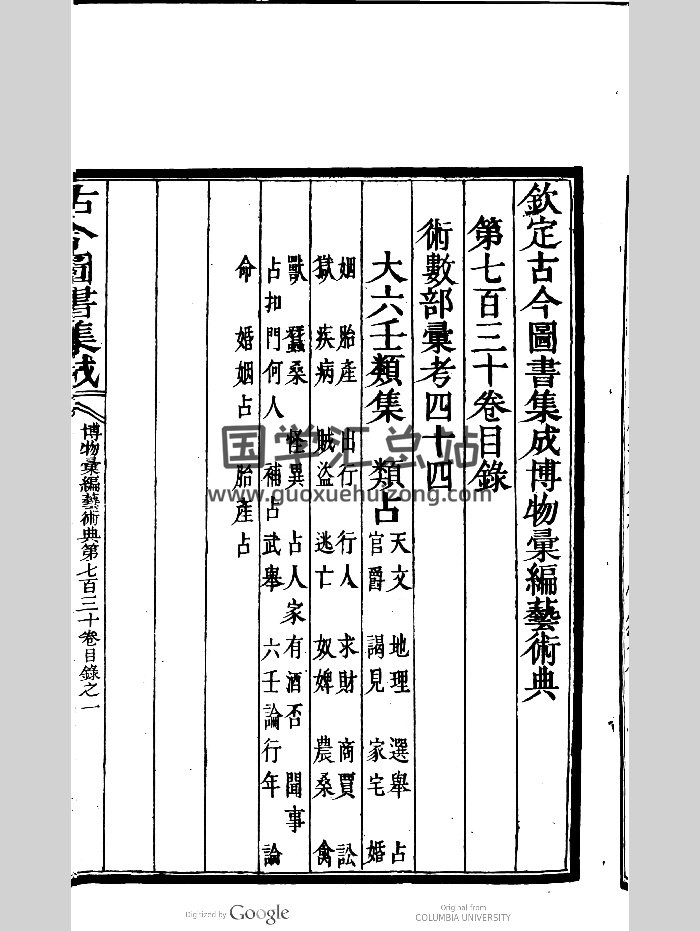 欽定古今圖書集成博物彙編藝術典
第七百三十卷目錄
術數部彙考四十四
大六壬類集 類占
天文 地理 選舉 占
官爵 謁見 家宅 婚
姻 胎產 出行 行人 求財 商賈 訟
獄 疾病 賊盜 逃亡 奴婢 農桑 禽
獸 蠶桑 怪異 占人家有酒否 聞事
占扣門何人 補占武舉 六壬論行年 論
命 婚姻占 胎產占
古今圖書集成
博物彙編藝術典第七百三十卷目錄之一
国学汇总站
www.guoxuehuizong.com
Digitized by Google
Original from
COLUMBIA UNIVERSITY